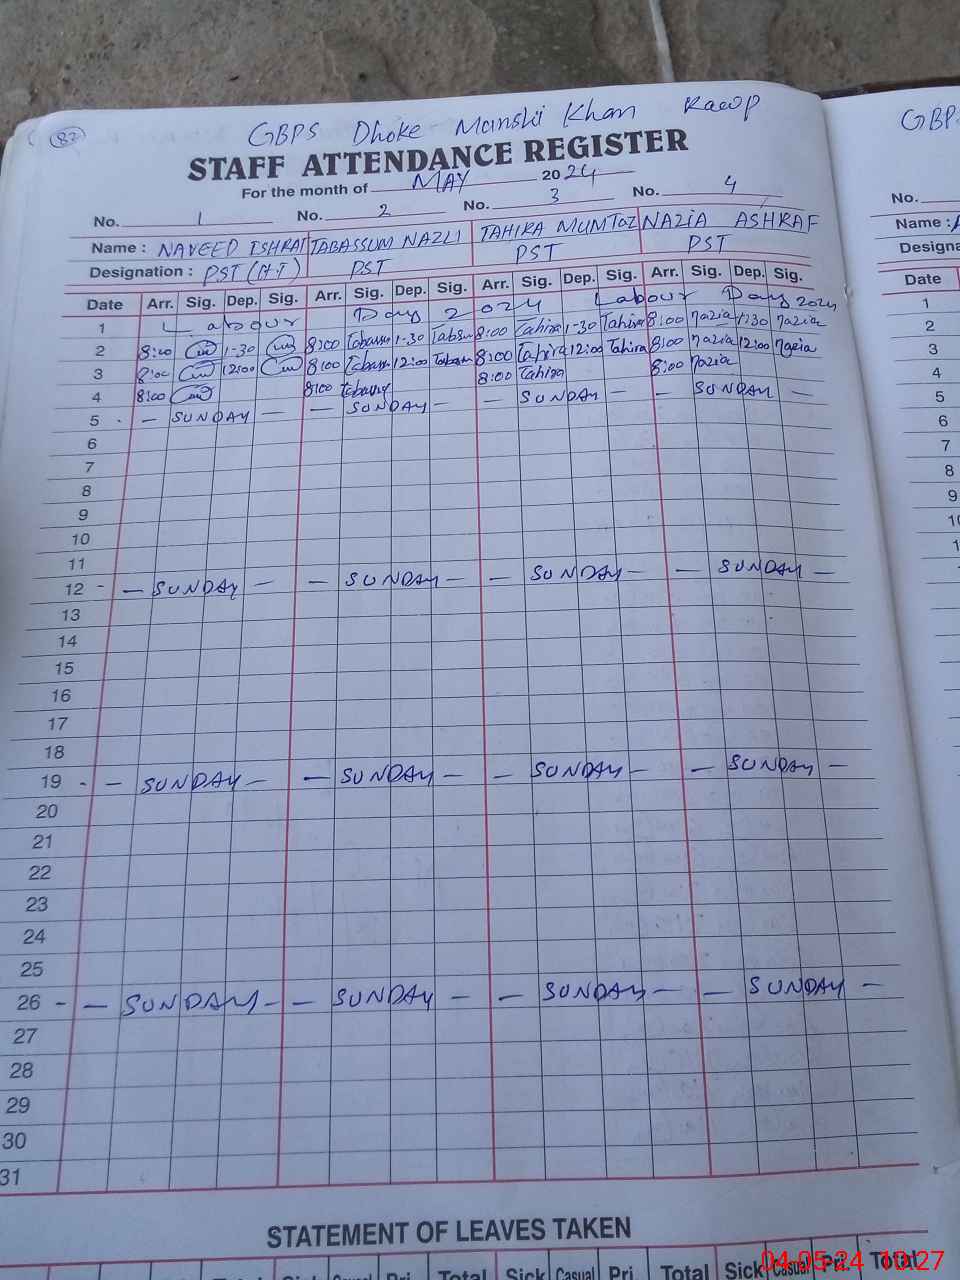 82
GBPS Dhoke Munshi Khan Rawp
STAFF ATTENDANCE REGISTER
For the month of MAY 2024
No. 1 No. 2 No. 3 No. 4
Name : NAVEED ISHRAT TABASSUM NAZLI TAHIRA MUMTAZ NAZIA ASHRAF
Designation : PST (H.T) PST PST PST
Date Arr. Sig. Dep. Sig. Arr. Sig. Dep. Sig. Arr. Sig. Dep. Sig. Arr. Sig. Dep. Sig.
1 Labour Day 2024 Labour Day 2024
2 8:00 1-30 8:00 Tabassu 1-30 Tabsu 8:00 Tahira 1-30 Tahira 8:00 nazia 1:30 nazia
3 8:00 12:00 8:00 Tabassu 12:00 Tabassu 8:00 Tahira 12:00 Tahira 8:00 nazia 12:00 nazia
4 8:00 8:00 Tabassu 8:00 Tahira 8:00 nazia
5 - — SUNDAY — — SUNDAY — — SUNDAY — — SUNDAY —
6
7
8
9
10
11
12 - — SUNDAY — — SUNDAY — — SUNDAY — — SUNDAY —
13
14
15
16
17
18
19 - — SUNDAY — — SUNDAY — — SUNDAY — — SUNDAY —
20
21
22
23
24
25
26 - — SUNDAY — — SUNDAY — — SUNDAY — — SUNDAY —
27
28
29
30
31
STATEMENT OF LEAVES TAKEN
Total Sick Casual Pri. Total Sick Casual Pri. Total Sick Casual Pri. Total
04.05.24 10:27
GBPS
No.
Name :
Designa
Date
1
2
3
4
5
6
7
8
9
10